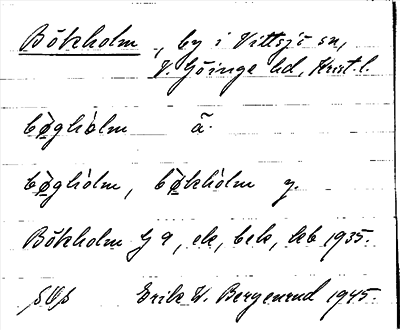 Bökholm, by i Vittsjö sn,
V. Göinge hd, Krist. l.
bøghòlm ä.
bøghòlm, bøkhòlm y.
Bökholm G 9, ek, bek, kb 1935.
Erik W. Bergenrud 1945.